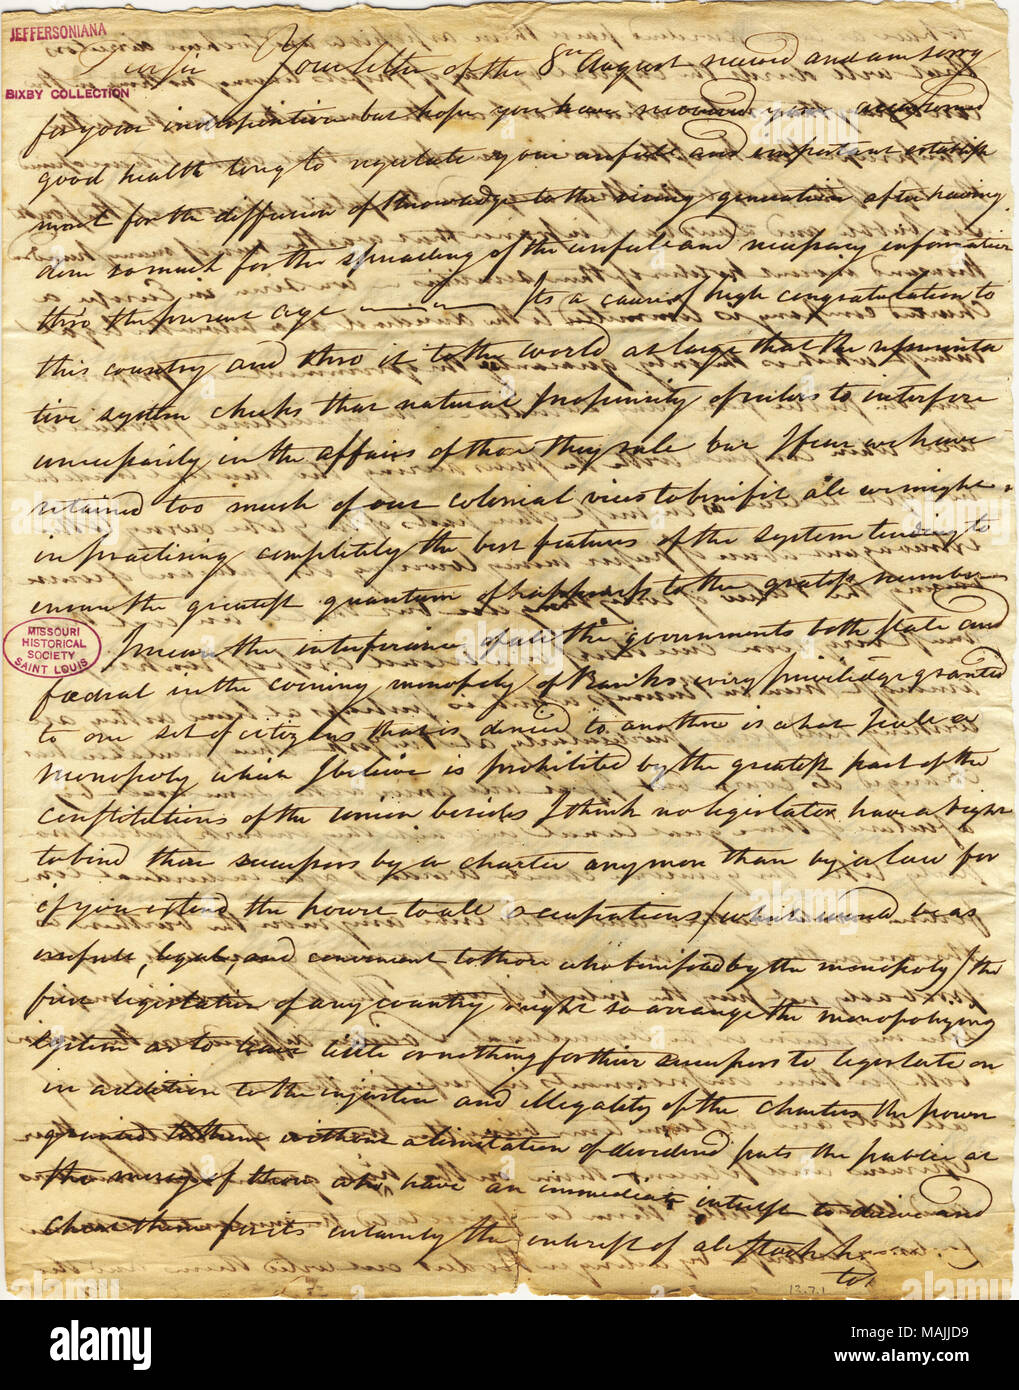 JEFFERSONIANA
Dear Sir Your letter of the 8th August receivd and am sorry
BIXBY COLLECTION
for your indisposition but hope you have received your accustomed
good health long to regulate your usefull and important establish
ment for the diffusion of knowledge to the rising generation after having
done so much for the spreading of the usefull and necessary information
thro the present age Its a cause of high congratulation to
this country and thro it to the world at large that the representa
tive system checks that natural propensity of rulers to interfere
unecessarily in the affairs of those they rule but I fear we have
retained too much of our colonial vices to benifit all we might
in practising completely the best features of the system tending to
ensure the greatest quantum of happiness to the greatest number
MISSOURI HISTORICAL SOCIETY SAINT LOUIS
I mean the interferance of all the governments both state and
fœderal in the coining monopoly of Banks every priviledge granted
to one set of citizens that is denied to another is what I call a
monopoly which I believe is prohibited by the greatest part of the
constitutions of the union besides I think no legislator have a right
to bind their successors by a charter any more than by a law for
if you extend the power to all occupations (which would be as
usefull, legal, and convenient to those who benifited by the monopoly) the
first legislation of any country might so arrange the monopolizing
system as to leave little or nothing for their successors to legislate on
in addition to the injustice and illegality of the charters the power
granted to them without a limitation of dividend puts the public at
the mercy of those who have an immediate interest to decive and
cheat them for its certainly the interest of all Stock h
to
13.7.1
alamy
alamy
Image ID: MAJJD9
www.alamy.com